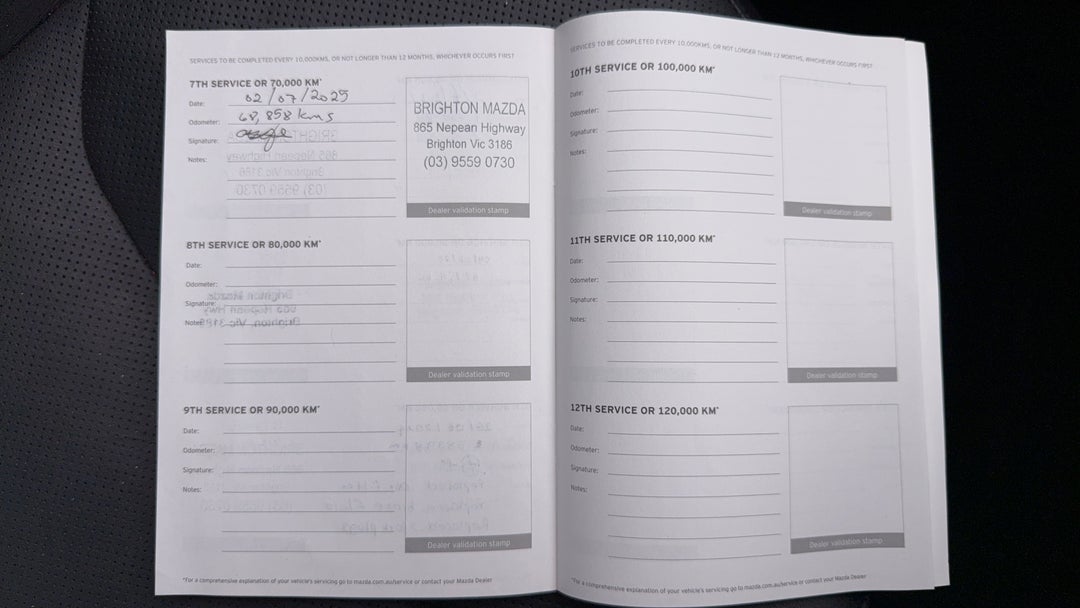 SERVICES TO BE COMPLETED EVERY 10,000KMS, OR NOT LONGER THAN 12 MONTHS, WHICHEVER OCCURS FIRST
7TH SERVICE OR 70,000 KM*
Date: 02/07/2025
Odometer: 68,858 kms
Signature:
Notes:
BRIGHTON MAZDA
865 Nepean Highway
Brighton Vic 3186
(03) 9559 0730
Dealer validation stamp
8TH SERVICE OR 80,000 KM*
Date:
Odometer:
Signature:
Notes:
Dealer validation stamp
9TH SERVICE OR 90,000 KM*
Date:
Odometer:
Signature:
Notes:
Dealer validation stamp
*For a comprehensive explanation of your vehicle's servicing go to mazda.com.au/service or contact your Mazda Dealer
SERVICES TO BE COMPLETED EVERY 10,000KMS, OR NOT LONGER THAN 12 MONTHS, WHICHEVER OCCURS FIRST
10TH SERVICE OR 100,000 KM*
Date:
Odometer:
Signature:
Notes:
Dealer validation stamp
11TH SERVICE OR 110,000 KM*
Date:
Odometer:
Signature:
Notes:
Dealer validation stamp
12TH SERVICE OR 120,000 KM*
Date:
Odometer:
Signature:
Notes:
Dealer validation stamp
*For a comprehensive explanation of your vehicle's servicing go to mazda.com.au/service or contact your Mazda Dealer